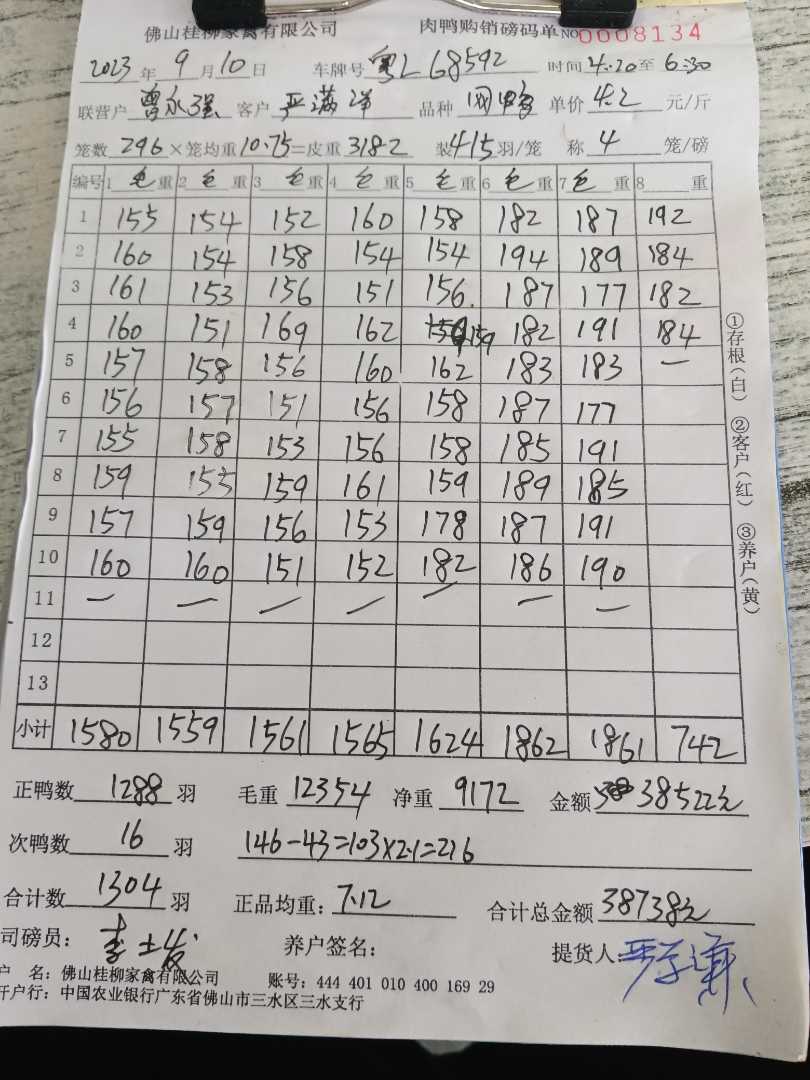 佛山桂柳家禽有限公司 肉鸭购销磅码单 NO 0008134
2023 年 9 月 10 日 车牌号 粤L68592 时间 4:20 至 6:30
联营户 曾永强 客户 严满洋 品种 网鸭 单价 4.2 元/斤
笼数 296 ×笼均重 10.75 =皮重 3182 装 4.15 羽/笼 称 4 笼/磅
编号 1 毛 重 2 毛 重 3 毛 重 4 毛 重 5 毛 重 6 毛 重 7 毛 重 8 重
1 155 154 152 160 158 182 187 192
2 160 154 158 154 154 194 189 184
3 161 153 156 151 156 187 177 182
4 160 151 169 162 159 182 191 184
5 157 158 156 160 162 183 183 —
6 156 157 151 156 158 187 177
7 155 158 153 156 158 185 191
8 159 155 159 161 159 189 185
9 157 159 156 153 178 187 191
10 160 160 151 152 182 186 190
11 — — — — — — —
12
13
小计 1580 1559 1561 1565 1624 1862 1861 742
正鸭数 1288 羽 毛重 12354 净重 9172 金额 38522元
次鸭数 16 羽 146-43=103×2.1=216
合计数 1304 羽 正品均重: 7.12 合计总金额 38738元
司磅员: 李土发 养户签名: 提货人:
户 名: 佛山桂柳家禽有限公司 账号: 444 401 010 400 169 29
开户行: 中国农业银行广东省佛山市三水区三水支行
①存根(白) ②客户(红) ③养户(黄)